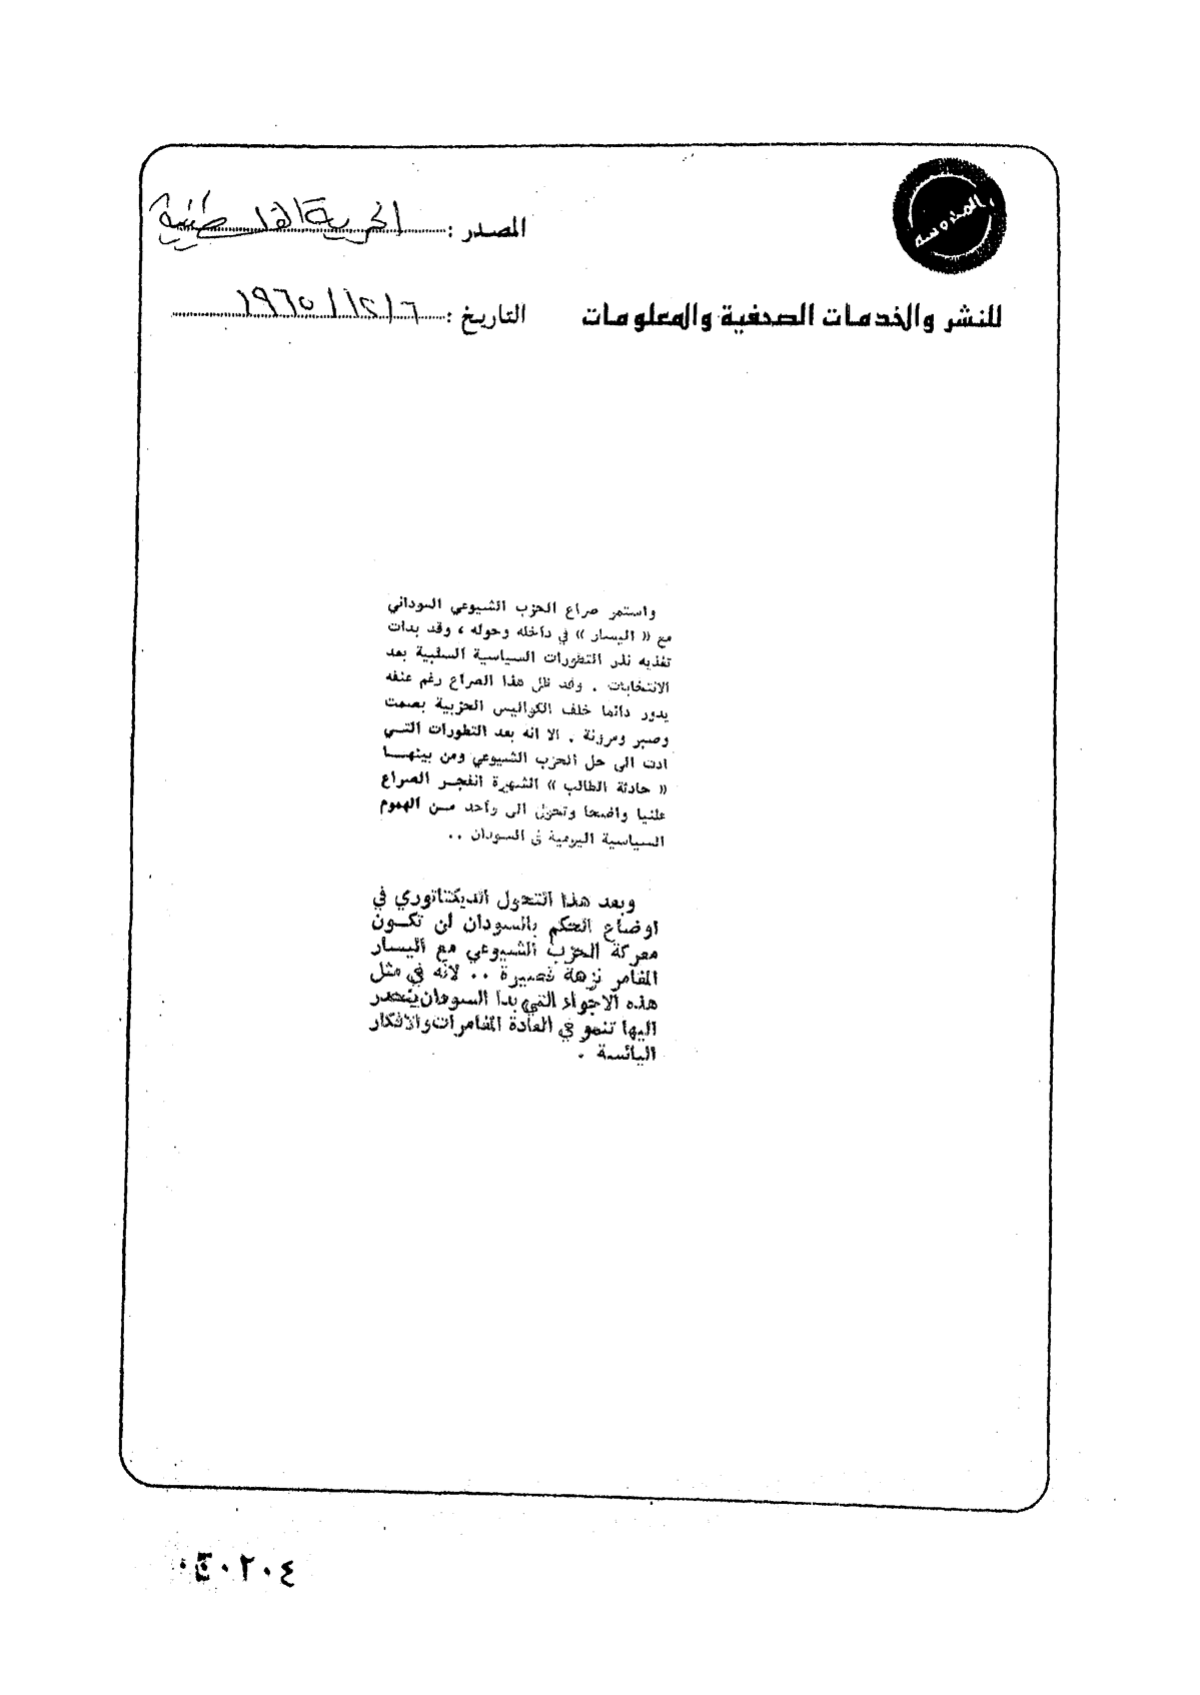 المحروسه
المصدر : الحرية الفلسطينية
للنشر والخدمات الصحفية والمعلومات
التاريخ : ١٩٦٥/١٢/٦
واستمر صراع الحزب الشيوعي السوداني
مع « اليسار » في داخله وحوله ، وقد بدات
تغذيه نذر التطورات السياسية السلبية بعد
الانتخابات . وقد ظل هذا الصراع رغم عنفه
يدور دائما خلف الكواليس الحزبية بصمت
وصبر ومرونة . الا انه بعد التطورات التي
ادت الى حل الحزب الشيوعي ومن بينهــا
« حادثة الطالب » الشهيرة انفجر الصراع
علنيا واضحا وتحول الى واحد مـن الهموم
السياسية اليومية في السودان ..
وبعد هذا التحول الديكتاتوري في
اوضاع الحكم بالسودان لن تكـون
معركة الحزب الشيوعي مع اليسار
المغامر نزهة قصيرة .. لانه في مثل
هذه الاجواء التي بدا السودان ينحدر
اليها تنمو في العادة المغامرات والافكار
اليائسة .